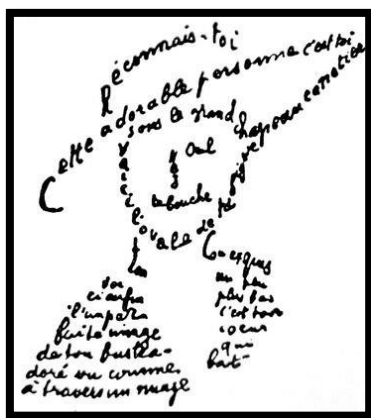 Reconnais-toi
Cette adorable personne c'est toi
sous le grand chapeau canotier
Oeil
Nez
la bouche
Voici l'ovale de ta figure
Ton
Cou exquis
Voi
ci enfin
l'imparfa
ite image
de ton buste a-
doré vu comme
à travers un nuage
un peu
plus bas
c'est ton
coeur
qui
bat